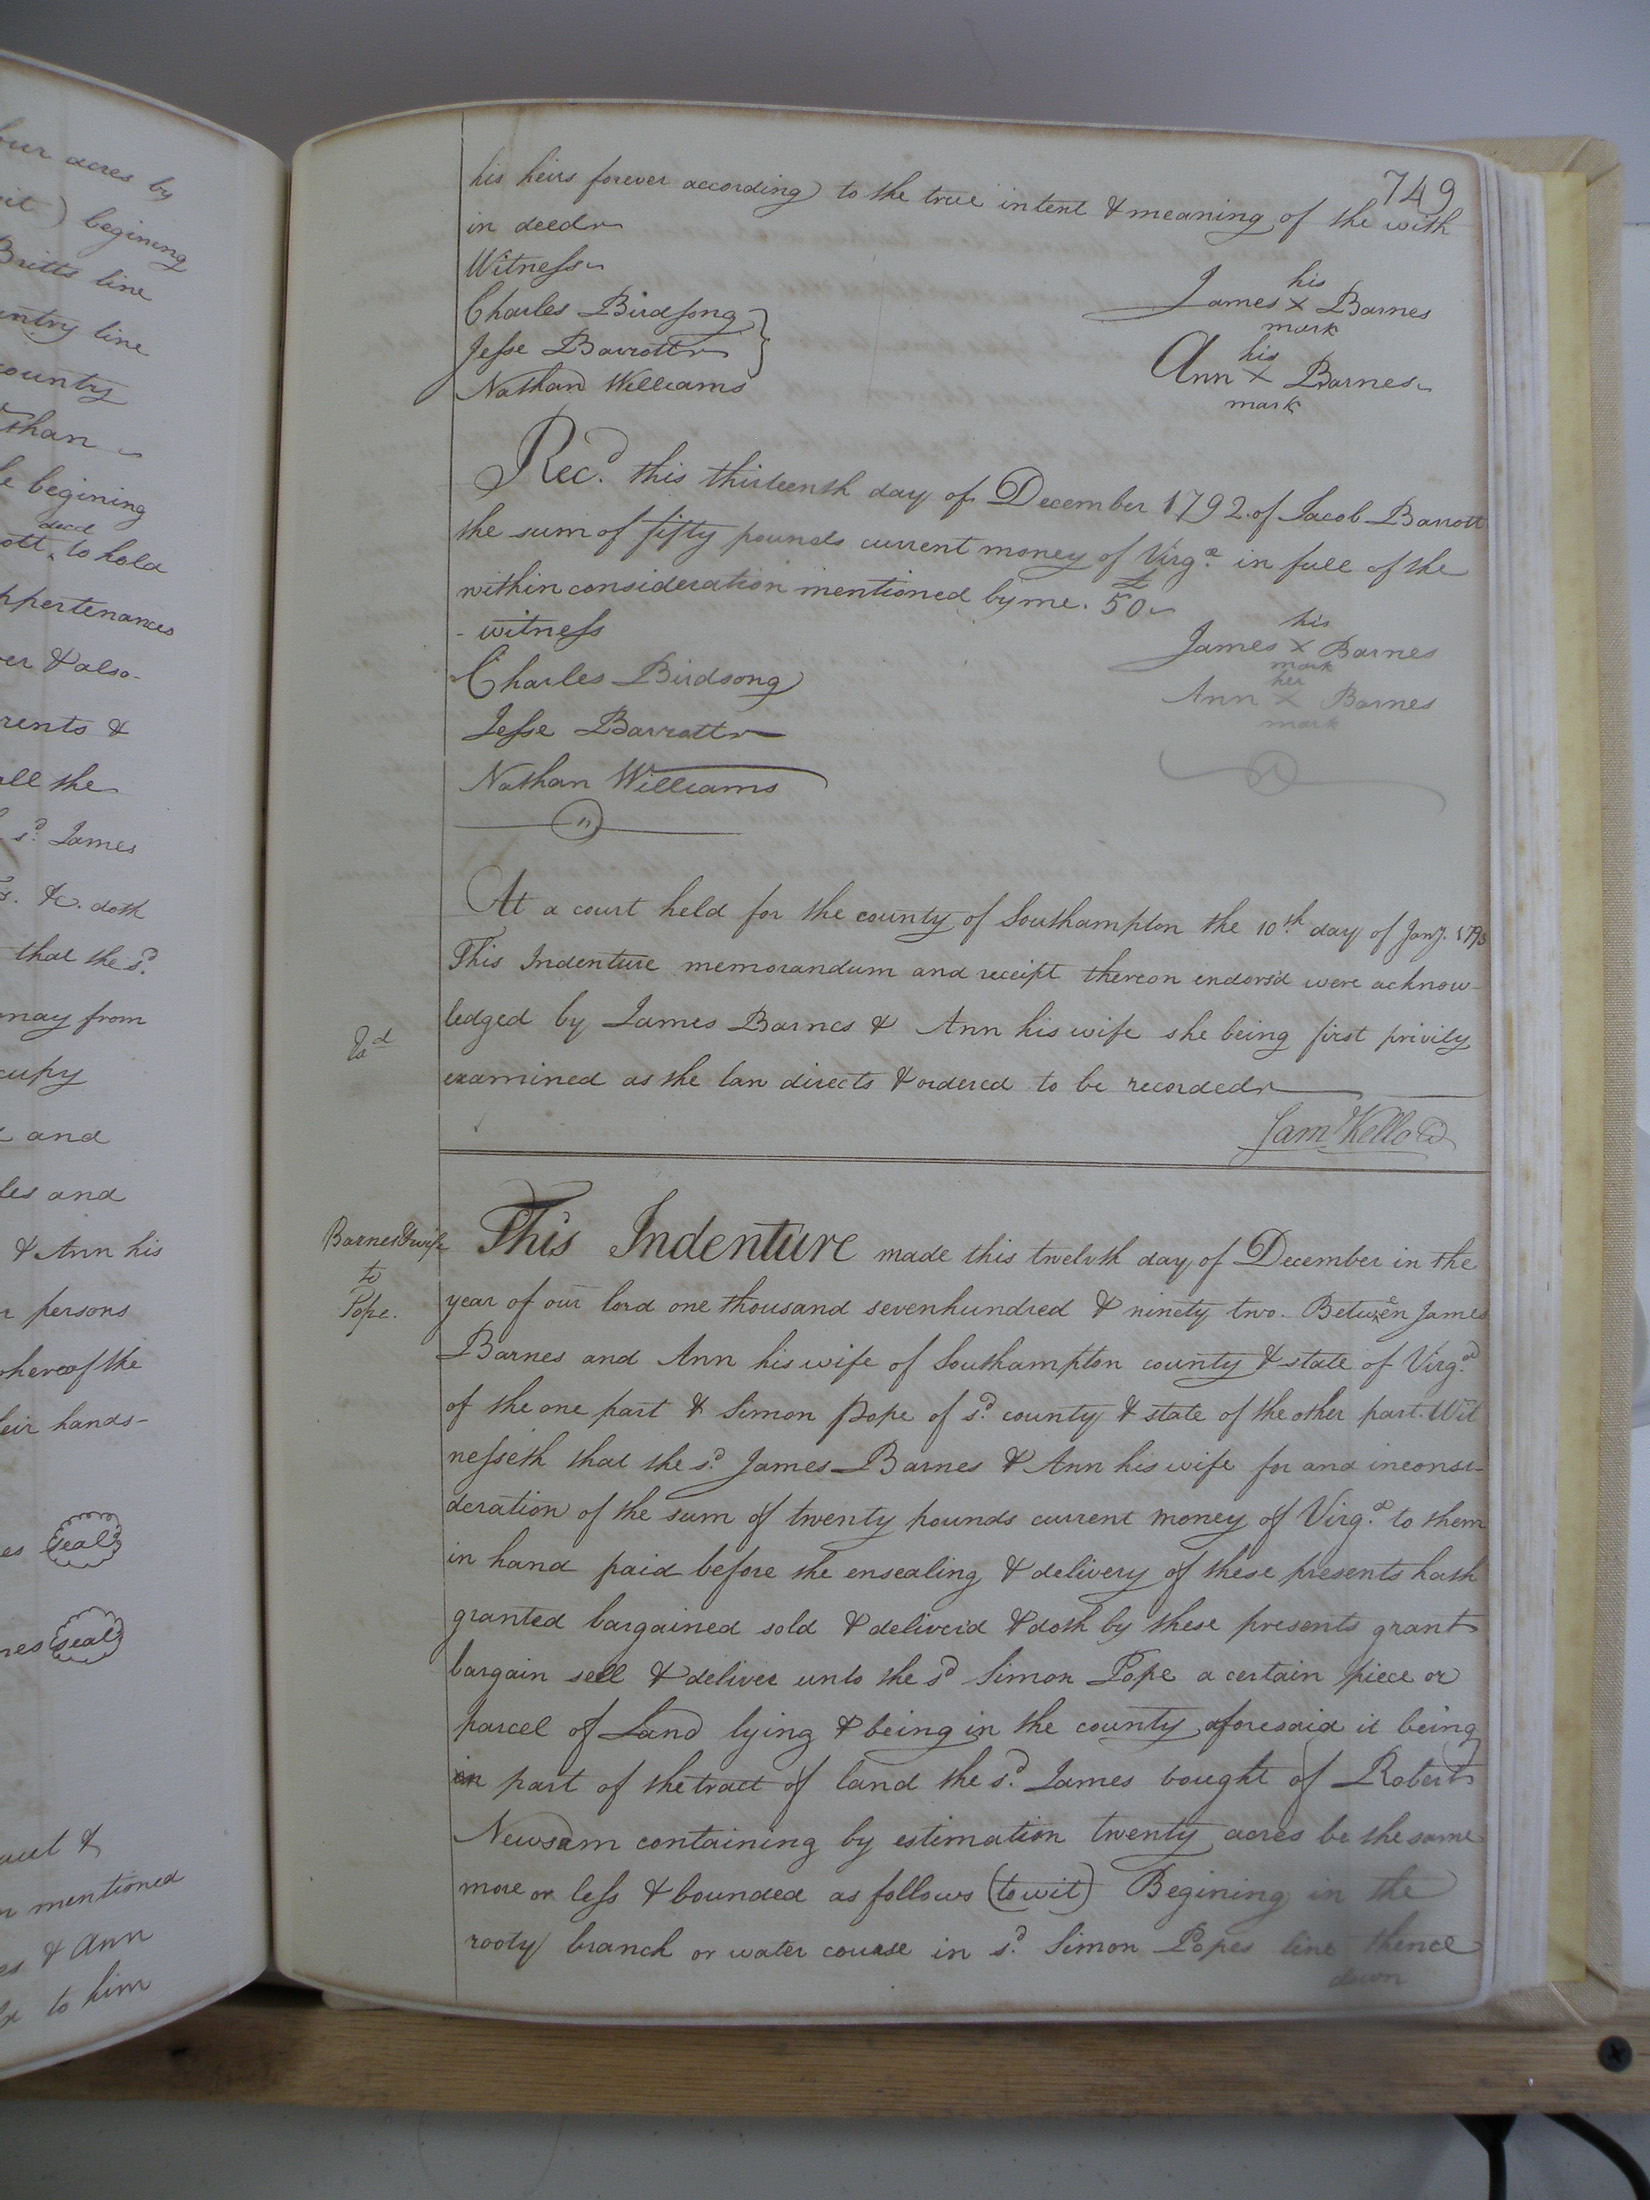 our acres by
it) begining
Britts line
untry line
county
than
e begining
decd
ott, to hold
ppertenances
er & also
rents &
all the
sd. James
&c. doth
that the sd.
may from
cupy
and
les and
& Ann his
r persons
whereof the
eir hands
es seal
nes seal
&
n mentioned
es & Ann
to him
749
his heirs forever according to the true intent & meaning of the with
in deed
Witness
Charles Birdsong
Jesse Barrott
Nathan Williams
his
James X Barnes
mark
his
Ann X Barnes
mark
Recd. this thirteenth day of December 1792. of Jacob Barrott
the sum of fifty pounds current money of Virga. in full of the
within consideration mentioned by me. £50
- witness
Charles Birdsong
Jesse Barrott
Nathan Williams
his
James X Barnes
mark
her
Ann X Barnes
mark
At a court held for the county of Southampton the 10th. day of Jany. 1793
This Indenture memorandum and receipt thereon endorsd were acknow-
ledged by James Barnes & Ann his wife she being first privily
examined as the law directs & ordered to be recorded
Saml Kello
Barnes & wife
to
Pope.
This Indenture made this twelvth day of December in the
year of our lord one thousand sevenhundred & ninety two. Between James
Barnes and Ann his wife of Southampton county & state of Virga.
of the one part & Simon Pope of sd. county & state of the other part. Wit
nesseth that the sd. James Barnes & Ann his wife for and in consi-
deration of the sum of twenty pounds current money of Virga. to them
in hand paid before the ensealing & delivery of these presents hath
granted bargained sold & deliver'd & doth by these presents grant
bargain sell & deliver unto the sd Simon Pope a certain piece or
parcel of Land lying & being in the county aforesaid it being
in part of the tract of land the sd. James bought of Robert
Newsam containing by estimation twenty acres be the same
more or less & bounded as follows (to wit) Begining in the
rooty branch or water course in sd. Simon Popes line thence
down